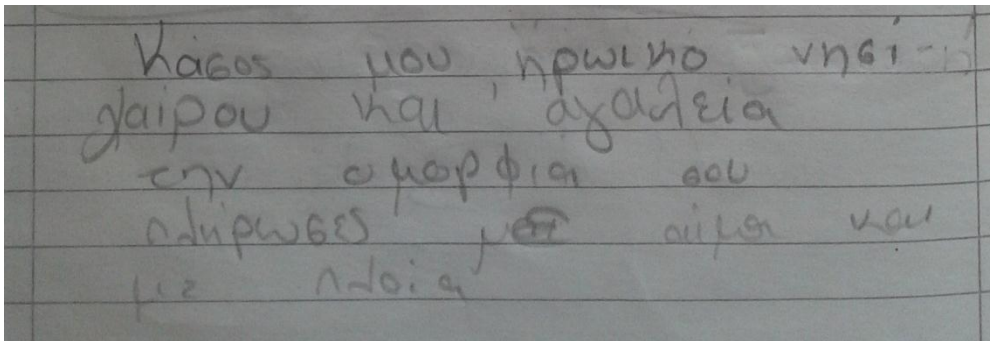 Κάσος μου ηρωικό νησί
χαίρου και αγαλεία
την ομορφια σου
πλήρωσες με αίμα και
με πλοία